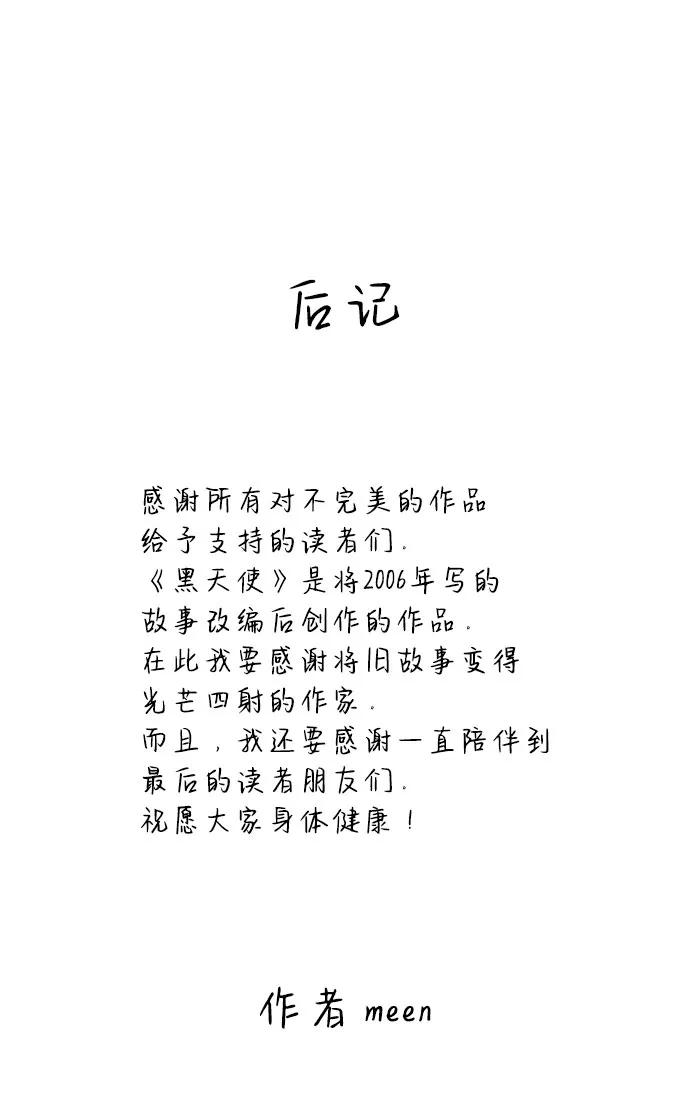 后记
感谢所有对不完美的作品
给予支持的读者们.
《黑天使》是将2006年写的
故事改编后创作的作品.
在此我要感谢将旧故事变得
光芒四射的作家.
而且,我还要感谢一直陪伴到
最后的读者朋友们.
祝愿大家身体健康!
作者 meen